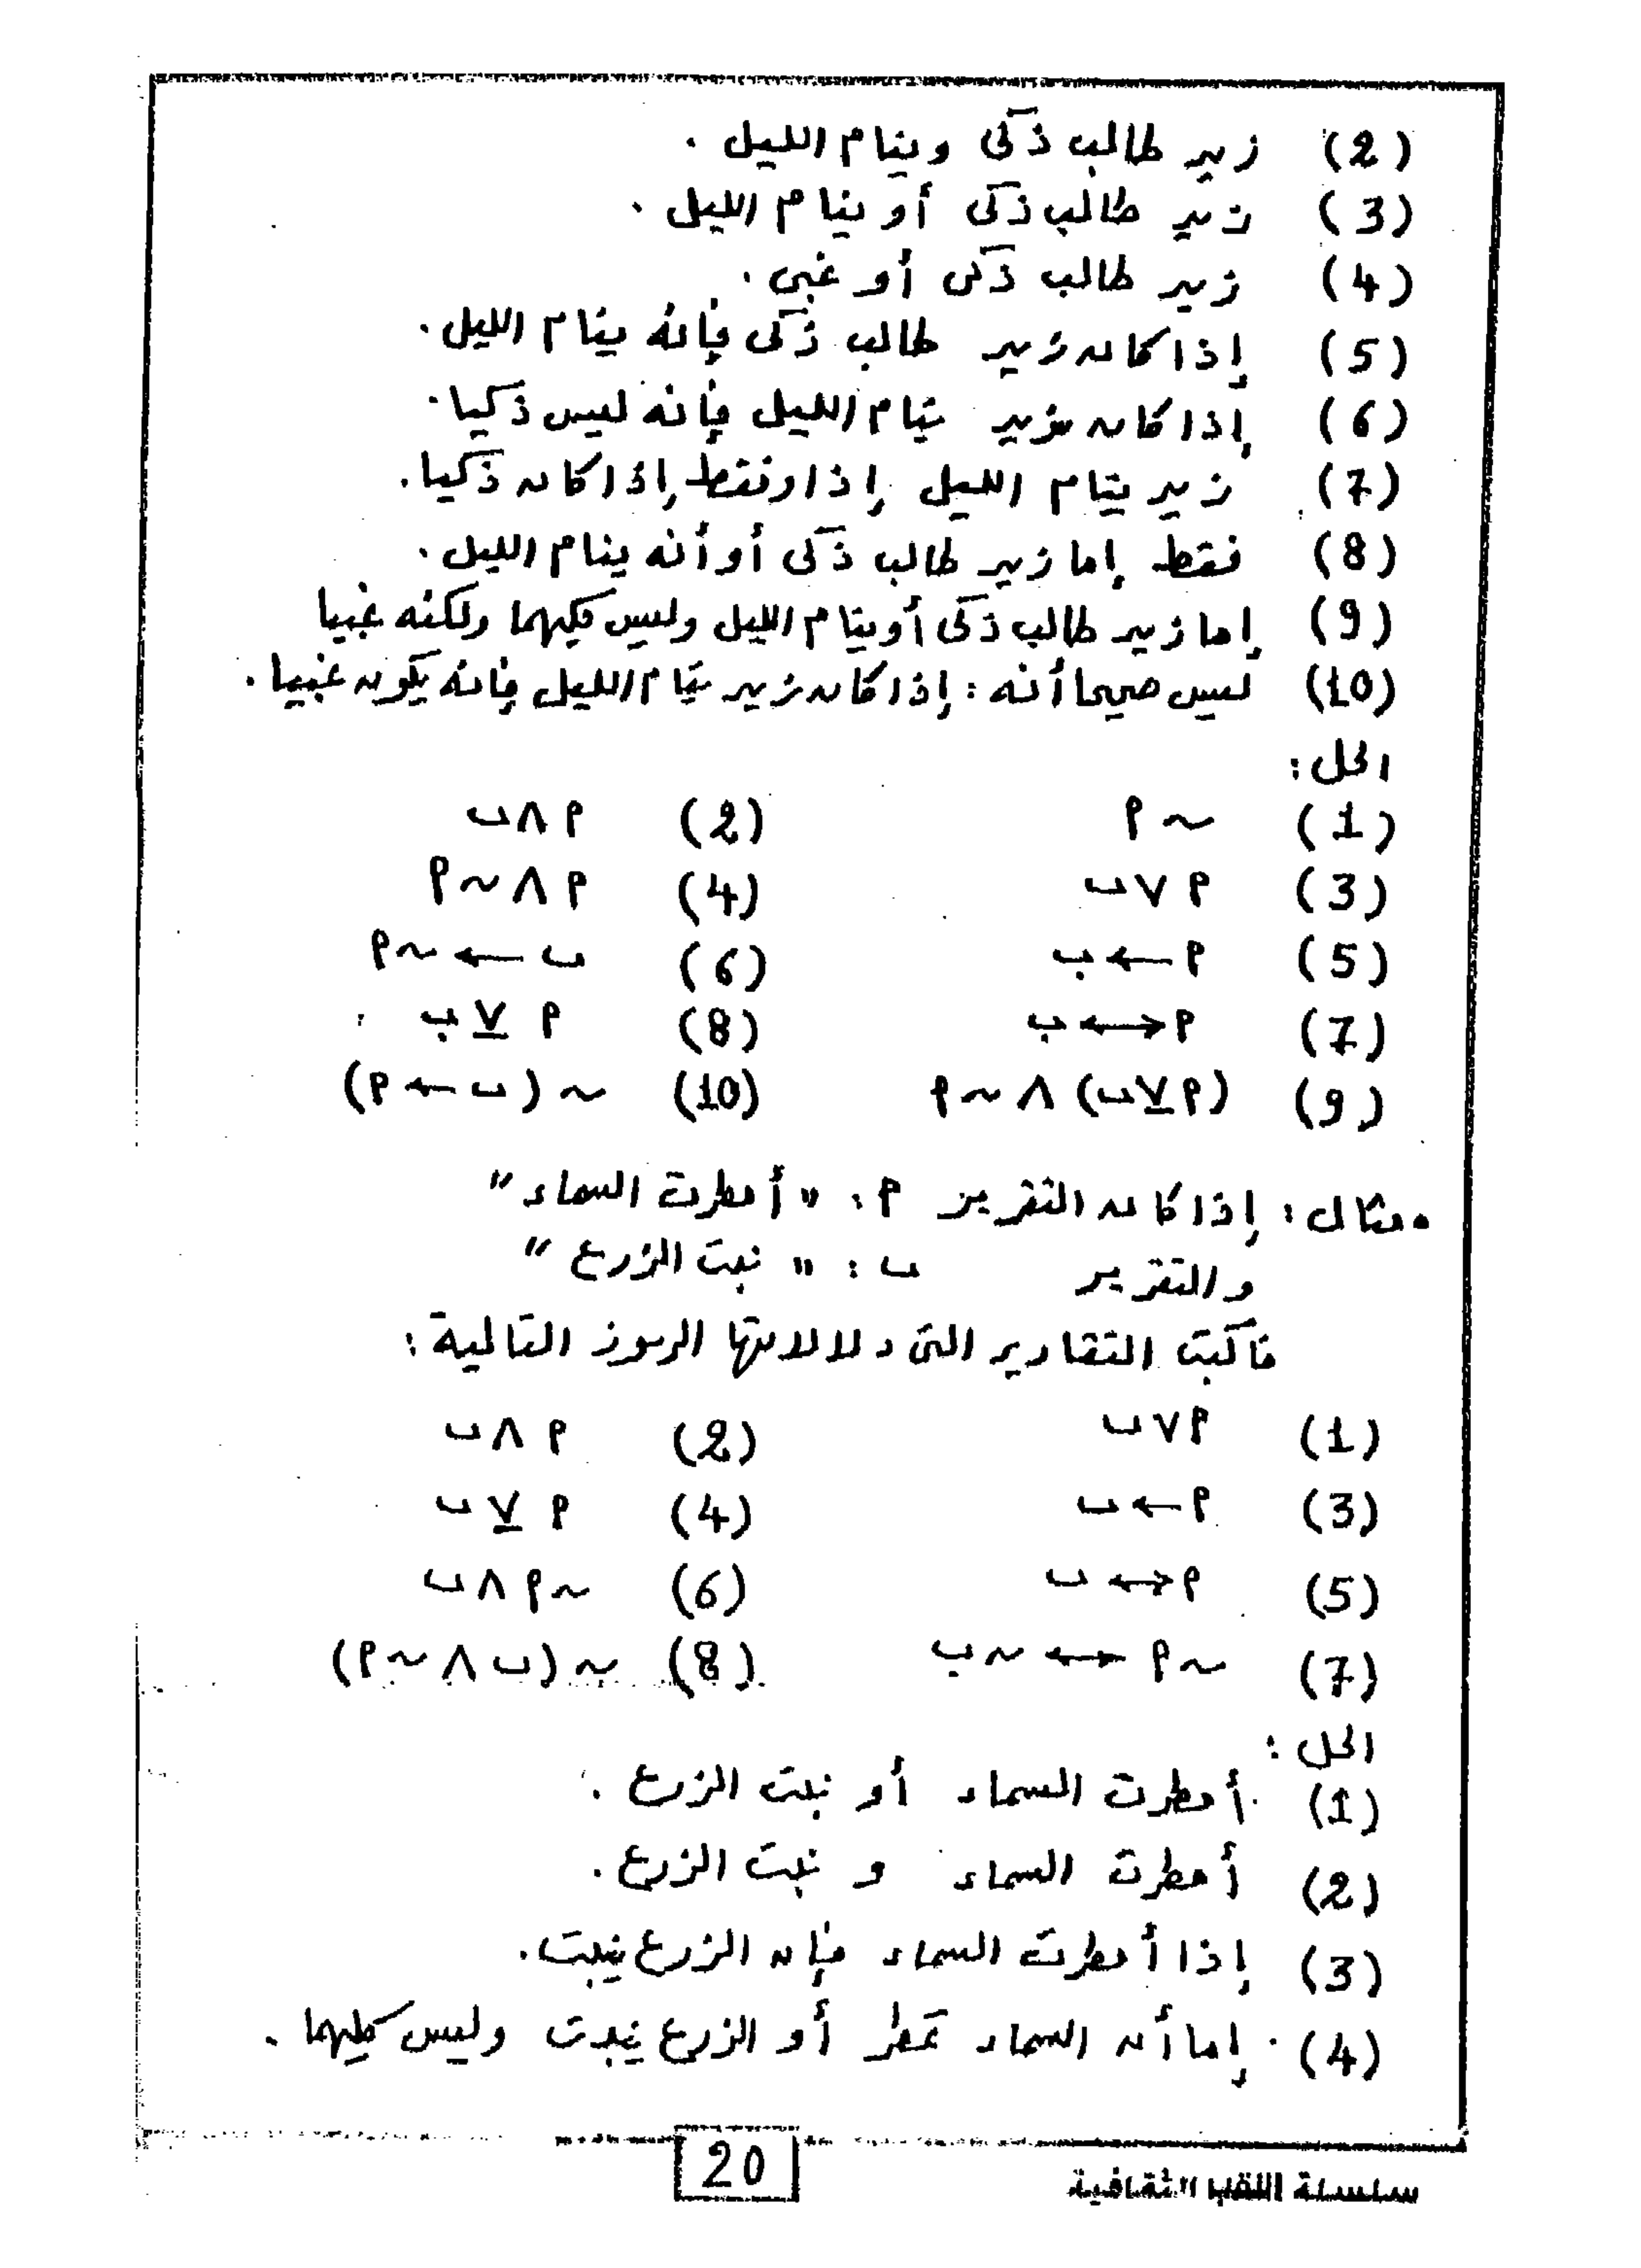 (2) زيد طالب ذكى وينام الليل .
(3) زيد طالب ذكى أو ينام الليل .
(4) زيد طالب ذكى أو غبى .
(5) إذا كان زيد طالب ذكى فإنه ينام الليل .
(6) إذا كان زيد ينام الليل فإنه ليس ذكيا .
(7) زيد ينام الليل إذا وفقط إذا كان ذكيا .
(8) فقط إما زيد طالب ذكى أو أنه ينام الليل .
(9) إما زيد طالب ذكى أو ينام الليل وليس كليهما ولكنه غبيا
(10) ليس صحيحا أنه : إذا كان زيد ينام الليل فإنه يكون غبيا .
الحل :
(1) ~ م (2) م ∧ ب
(3) م ∨ ب (4) م ∧ ~ م
(5) م ← ب (6) ب ← ~ م
(7) م ↔ ب (8) م ⊻ ب
(9) (م ⊻ ب) ∧ ~ م (10) ~ (ب ← م)
• مثال : إذا كان التقرير م : " أمطرت السماء "
والتقرير ب : " نبت الزرع "
فاكتب التقارير التى دلالاتها الرموز التالية :
(1) م ∨ ب (2) م ∧ ب
(3) م ← ب (4) م ⊻ ب
(5) م ↔ ب (6) ~ م ∧ ب
(7) ~ م ↔ ~ ب (8) ~ (ب ∧ ~ م)
الحل :
(1) أمطرت السماء أو نبت الزرع .
(2) أمطرت السماء و نبت الزرع .
(3) إذا أمطرت السماء فإن الزرع ينبت .
(4) إما أن السماء تمطر أو الزرع ينبت وليس كليهما .
20
سلسلة اللقاء الثقافية